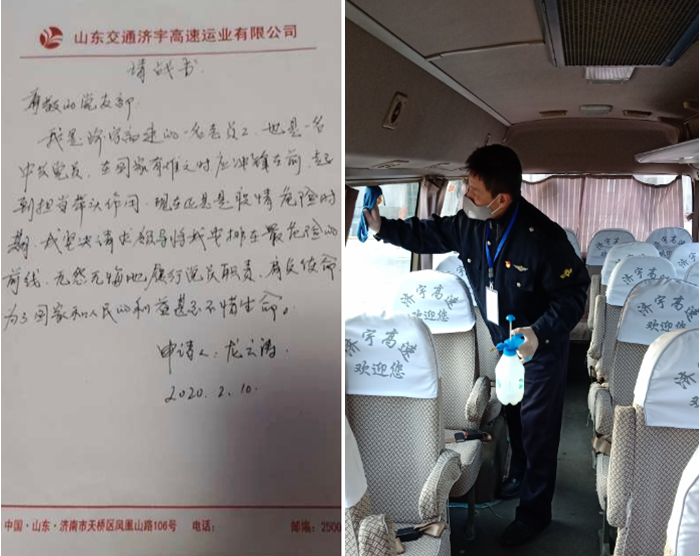 山东交通济宇高速运业有限公司
请战书
尊敬的党支部
我是济宇高速的一名老员工、也是一名
中共党员，在国家有难之时应冲锋在前，起
到担当带头作用，现在正是是疫情危险时
期，我坚决请求领导将我安排在最危险的
前线，无怨无悔地履行党员职责，肩负使命
为了国家和人民的利益甚至不惜生命。
申请人：龙云涛
2020.2.10.
中国·山东·济南市天桥区凤凰山路106号 电话： 邮编：2500
济宇高速
欢迎您
济宇高速
欢迎您
济宇高速
欢迎您